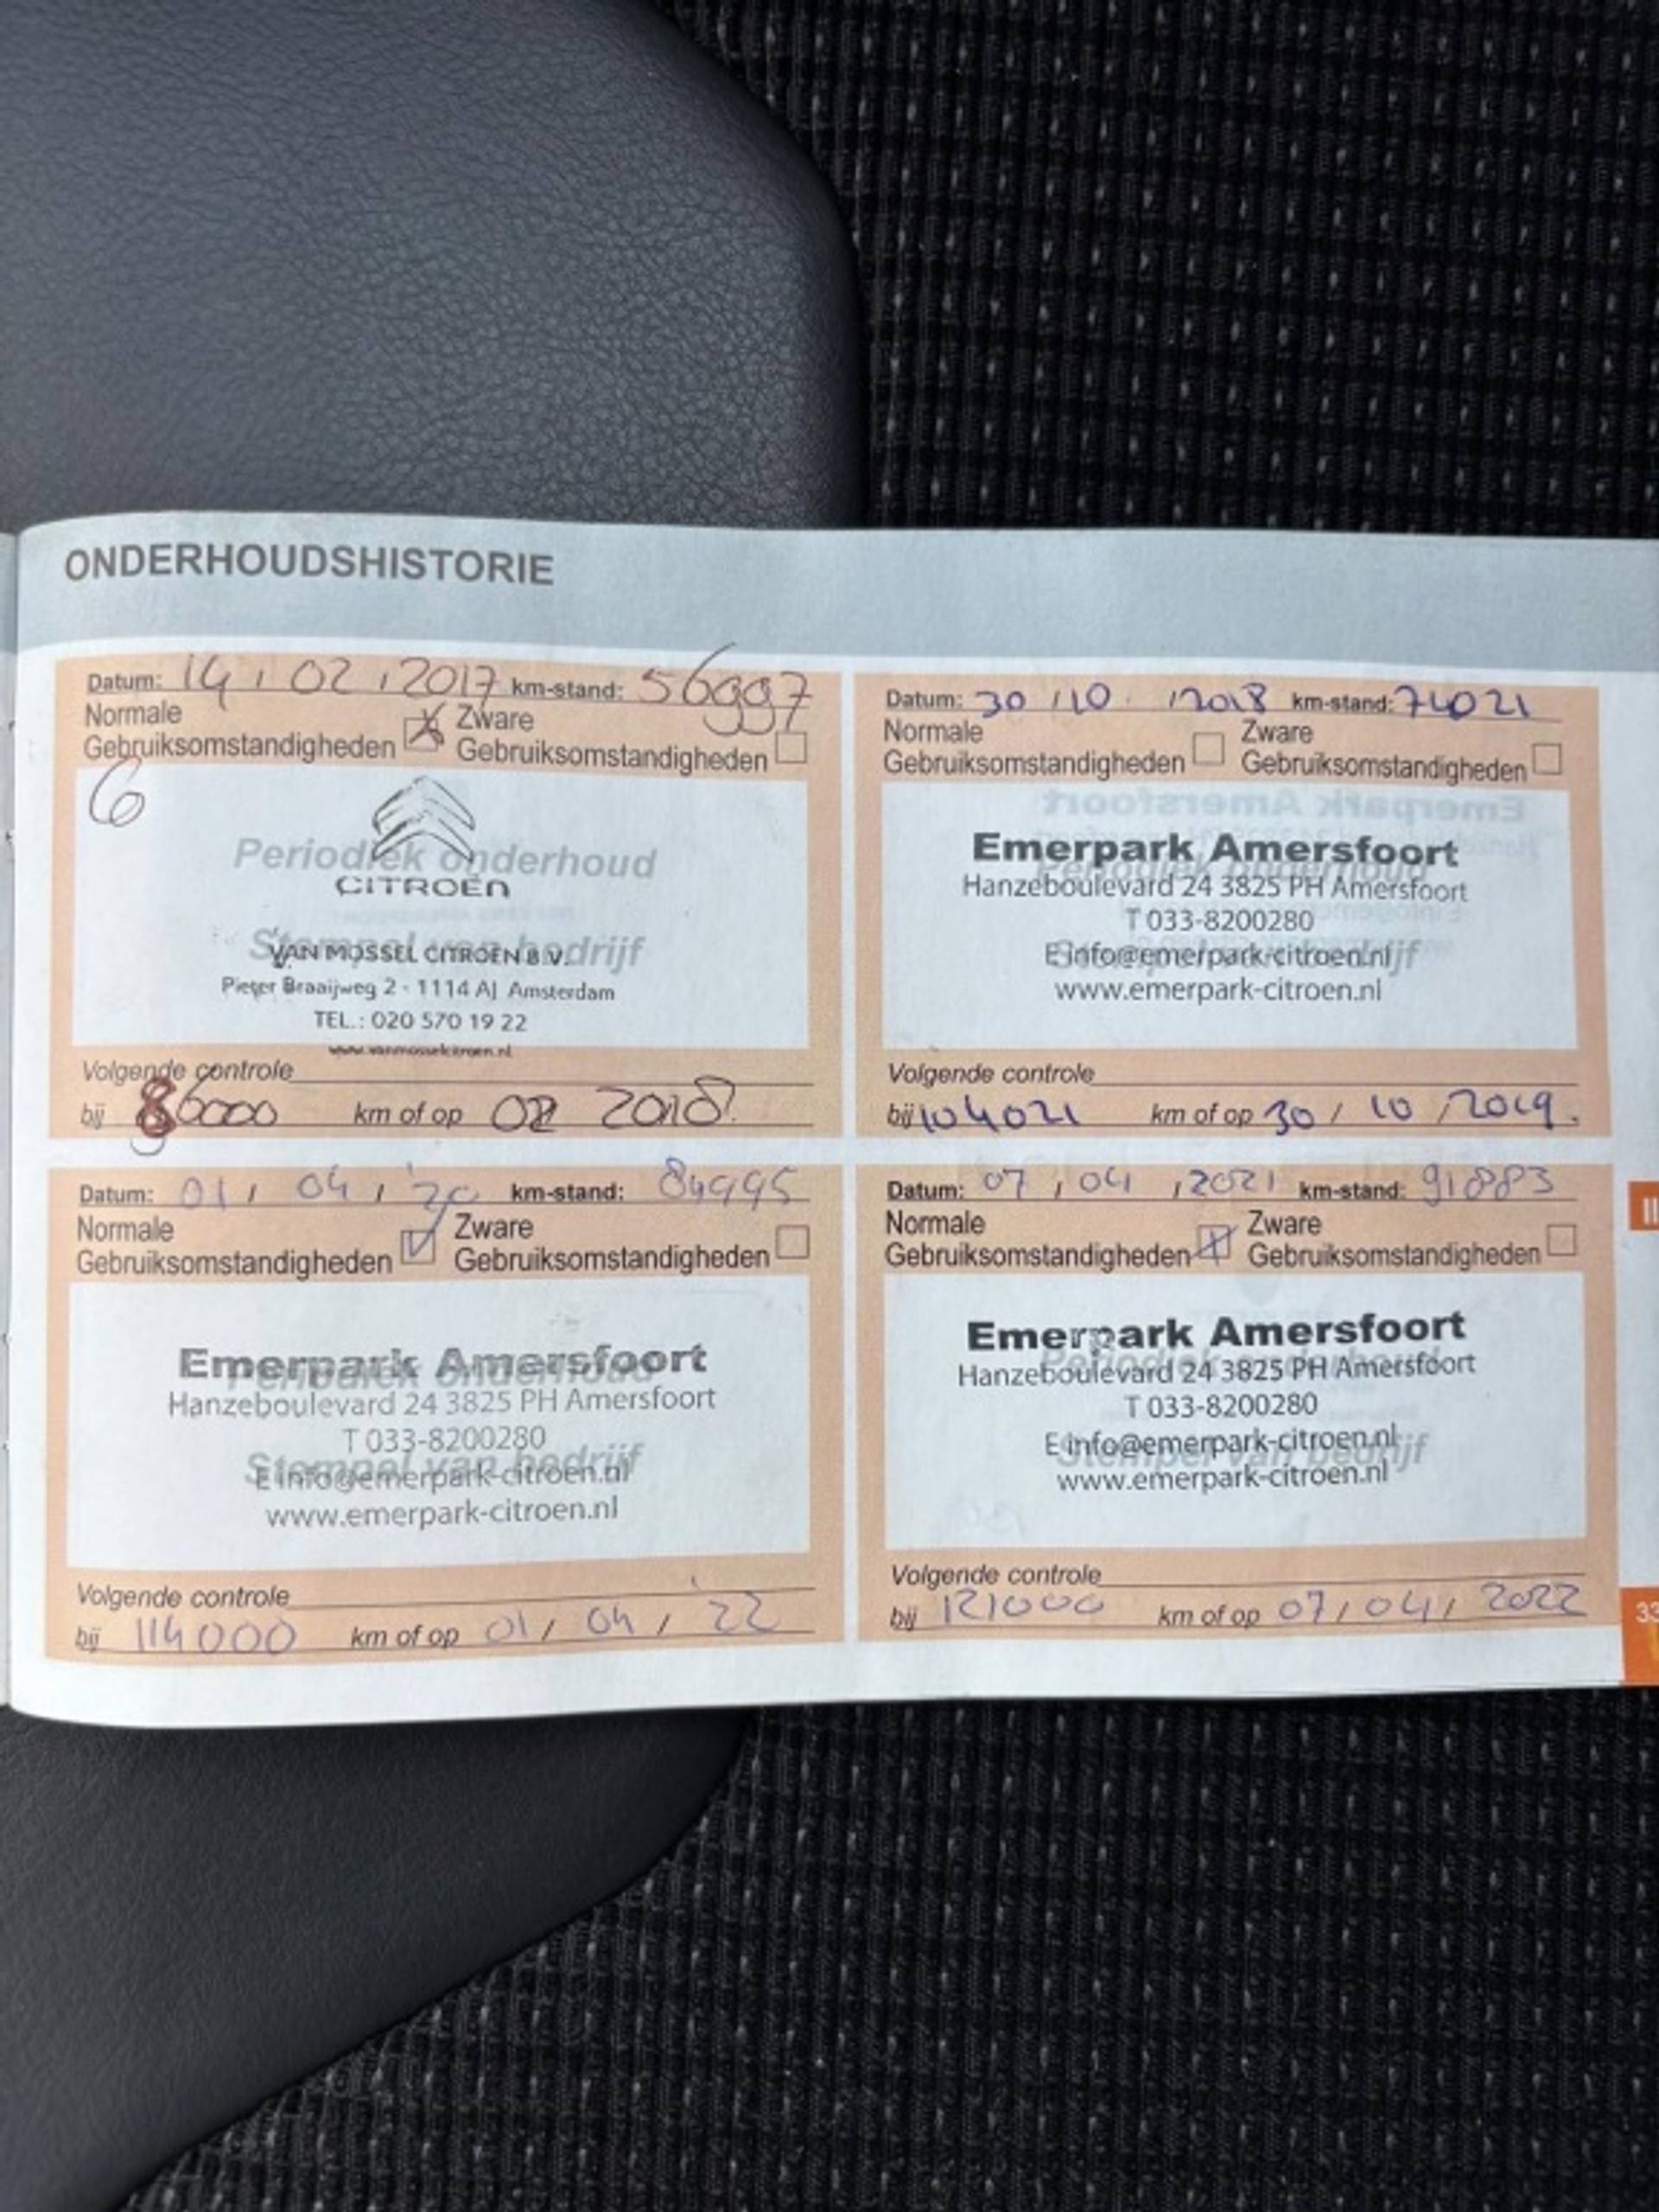 ONDERHOUDSHISTORIE
Datum: 14 / 02 / 2017 km-stand: 56997
Normale Gebruiksomstandigheden Zware Gebruiksomstandigheden
6
Periodiek onderhoud
CITROËN
Stempel van bedrijf
VAN MOSSEL CITROEN B.V.
Pieter Braaijweg 2 - 1114 AJ Amsterdam
TEL.: 020 570 19 22
www.vanmosselcitroen.nl
Volgende controle
bij 86000 km of op 02 2018.
Datum: 30 / 10 / 2018 km-stand: 74021
Normale Gebruiksomstandigheden Zware Gebruiksomstandigheden
Emerpark Amersfoort
Periodiek onderhoud
Hanzeboulevard 24 3825 PH Amersfoort
T 033-8200280
E info@emerpark-citroen.nl
Stempel van bedrijf
www.emerpark-citroen.nl
Volgende controle
bij 104021 km of op 30 / 10 / 2019.
Datum: 01 / 04 / '20 km-stand: 84995
Normale Gebruiksomstandigheden Zware Gebruiksomstandigheden
Emerpark Amersfoort
Periodiek onderhoud
Hanzeboulevard 24 3825 PH Amersfoort
T 033-8200280
Stempel van bedrijf
E info@emerpark-citroen.nl
www.emerpark-citroen.nl
Volgende controle
bij 114000 km of op 01 / 04 / '22
Datum: 07 / 04 / 2021 km-stand: 91883
Normale Gebruiksomstandigheden Zware Gebruiksomstandigheden
Emerpark Amersfoort
Periodiek onderhoud
Hanzeboulevard 24 3825 PH Amersfoort
T 033-8200280
E info@emerpark-citroen.nl
Stempel van bedrijf
www.emerpark-citroen.nl
Volgende controle
bij 121000 km of op 07 / 04 / 2022
II
33